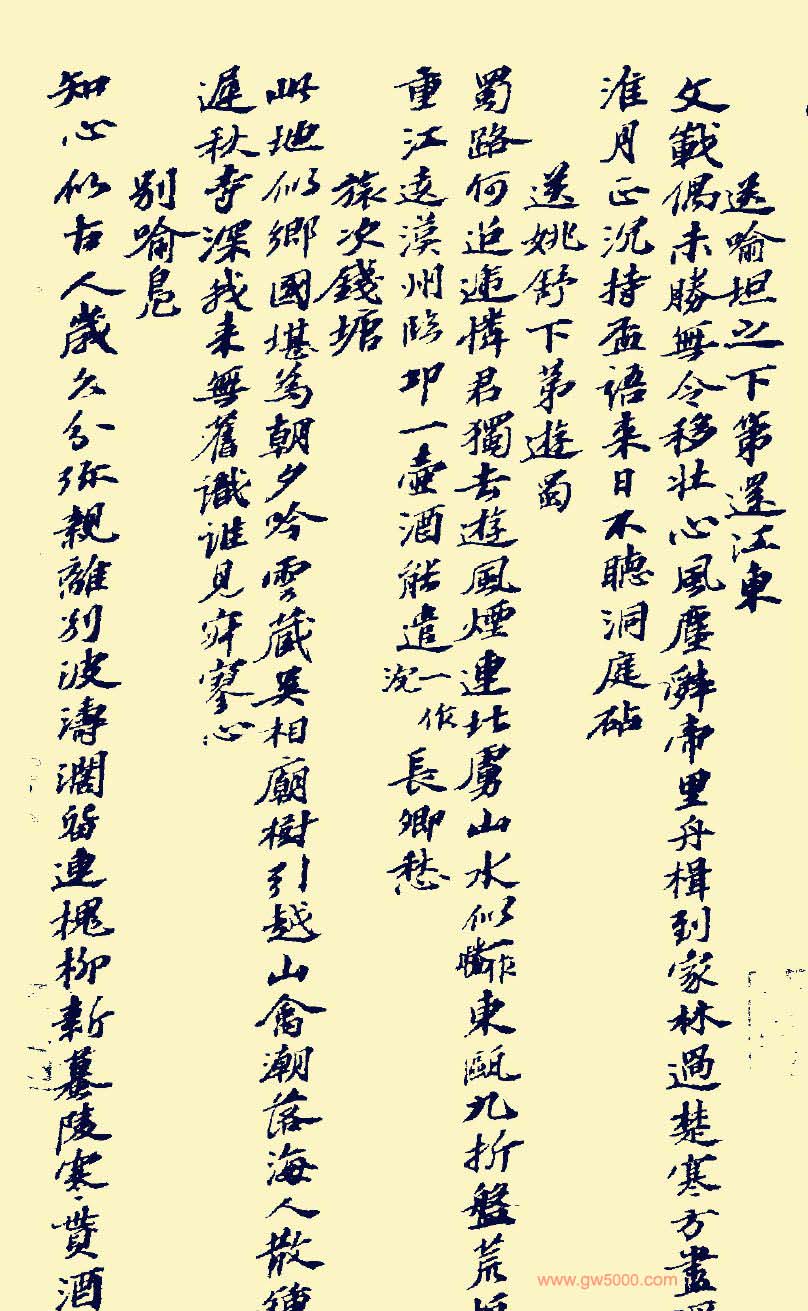 送喻坦之下第還江東
文戰偶未勝無令移壯心風塵辭帝里舟楫到家林過楚寒方盡
淮月正沉持盃語來日不聽洞庭砧
送姚舒下第遊蜀
蜀路何迢遞憐君獨去遊風煙連北虜山水似一作東甌九折盤荒
重江遶漢州臨邛一壺酒能遣一作沉長卿愁
旅次錢塘
此地似鄉國堪為朝夕吟雲藏吳相廟樹引越山禽潮落海人散鐘
遲秋寺深我來無舊識誰見寂寥心
別喻鳧
知心似古人歲久分弥親離別波濤闊留連槐柳新蟇陵寒貰酒
www.gw5000.com